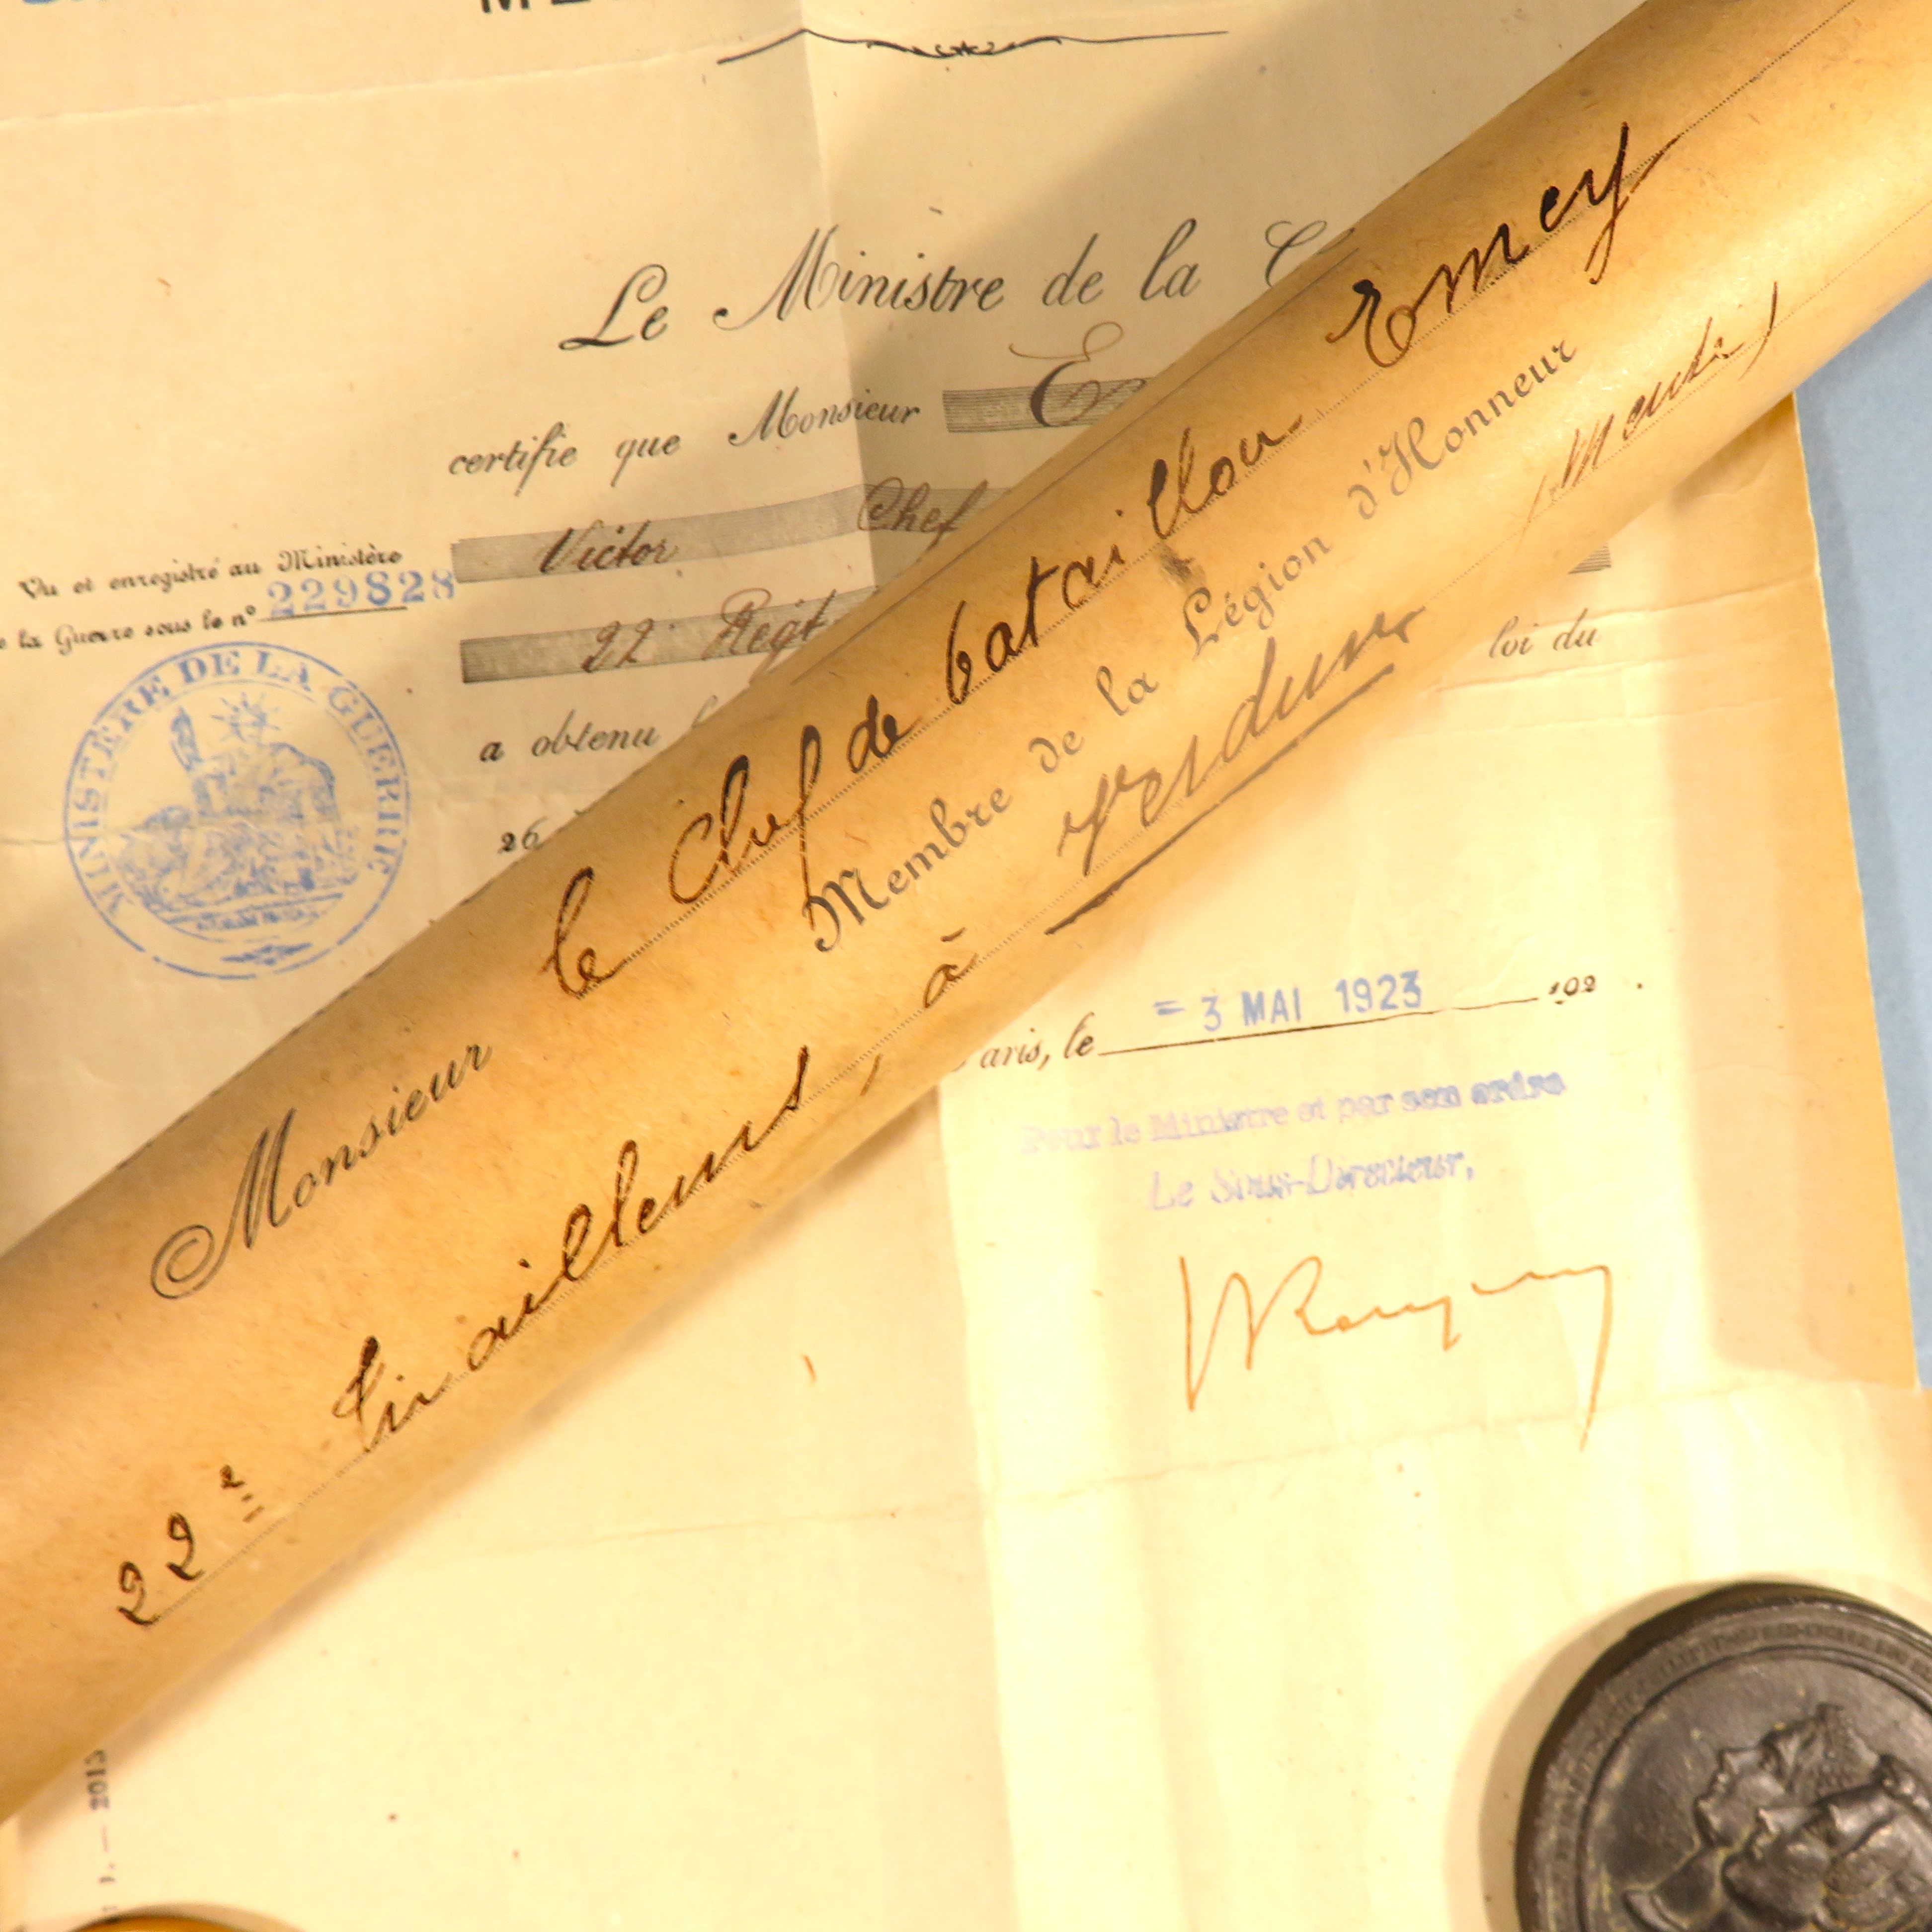 Le Ministre de la
certifie que Monsieur E
Victor Chef
22 Regt
a obtenu
26
loi du
Vu et enregistré au Ministère
la Guerre sous le n° 229828
MINISTERE DE LA GUERRE
aris, le = 3 MAI 1923 192 .
Pour le Ministre et par son ordre
Le Sous-Directeur,
Monsieur le Chef de bataillon Emey
Membre de la Légion d'Honneur
22e Tirailleurs, à Verdun (Meuse)